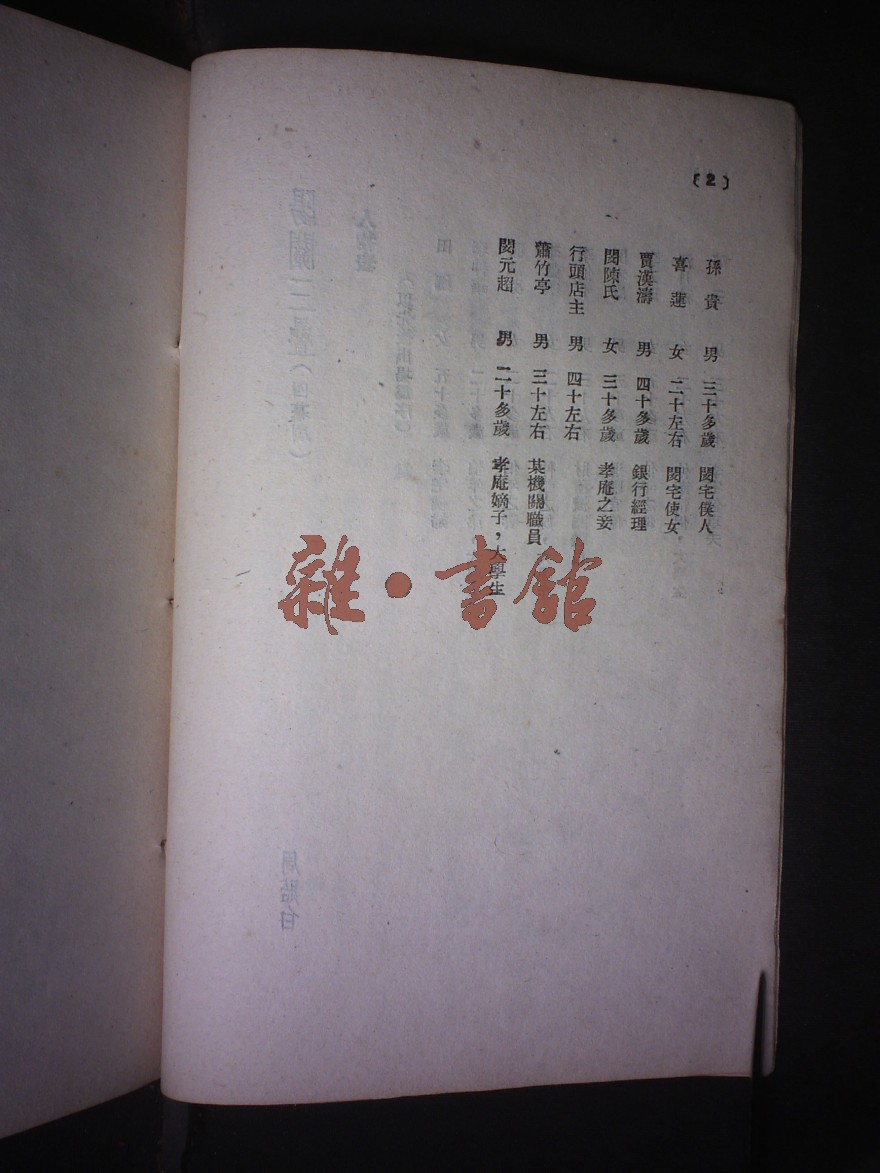 〔2〕
孫貴 男 三十多歲 閔宅僕人
喜蓮 女 二十左右 閔宅使女
賈漢濤 男 四十多歲 銀行經理
閔陳氏 女 三十多歲 孝庵之妾
行頭店主 男 四十左右
蕭竹亭 男 三十左右 某機關職員
閔元超 男 二十多歲 孝庵嫡子，大學生
雜·書館